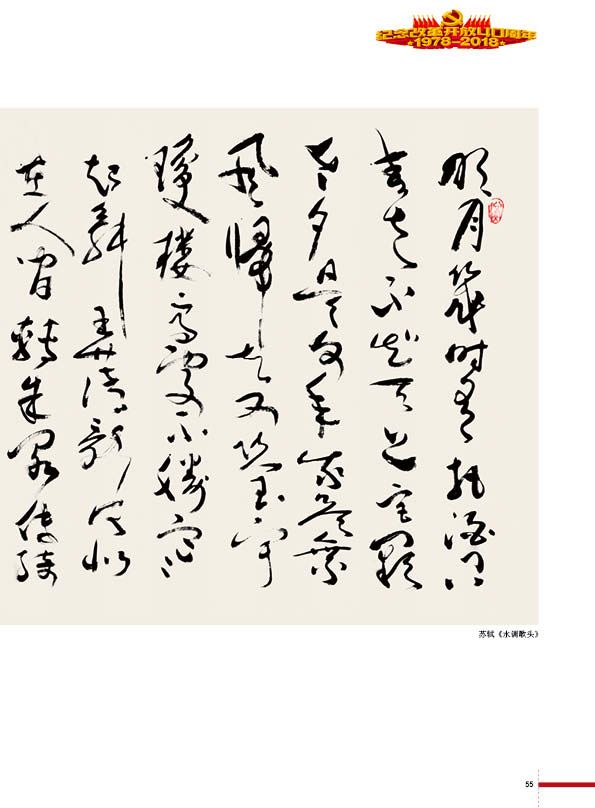 纪念改革开放40周年
1978-2018
明月幾時有把酒问
青天不知天上宫闕
今夕是何年我欲乘
風歸去又恐玉宇
瓊樓高處不勝寒
起舞弄清影何似
在人间轉朱阁低绮
苏轼《水调歌头》
55